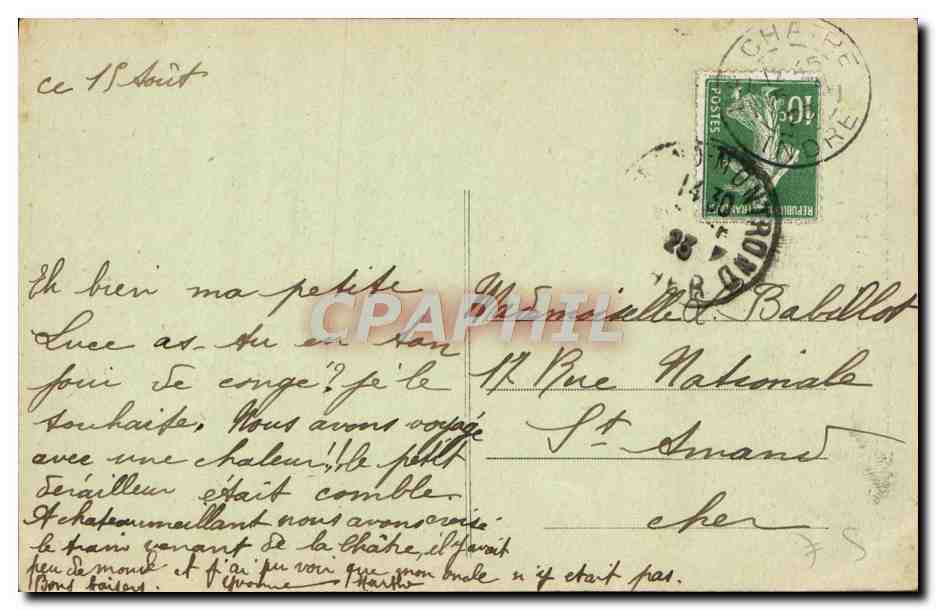 ce 15 Août
Eh bien ma petite
Luce as-tu eu ton
jour de congé? je le
souhaite. Nous avons voyagé
avec une chaleur!! le petit
dérailleur était comble
A chateaumeillant nous avons croisé
le train venant de la Châtre, il y avait
peu de monde et j'ai pu voir que mon oncle n'y était pas.
Bons baisers. Yvonne
CHATRE
INDRE
10c
POSTES
D-MONTROND
14 30
23
CHER
Mademoiselle L. Babillot
17 Rue Nationale
St Amand
Cher
CPAPHIL